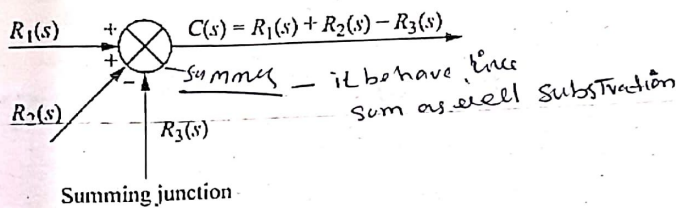 R₁(s) + C(s) = R₁(s) + R₂(s) – R₃(s)
+
– summer – it behave like
sum as well substraction
R₂(s)
R₃(s)
Summing junction